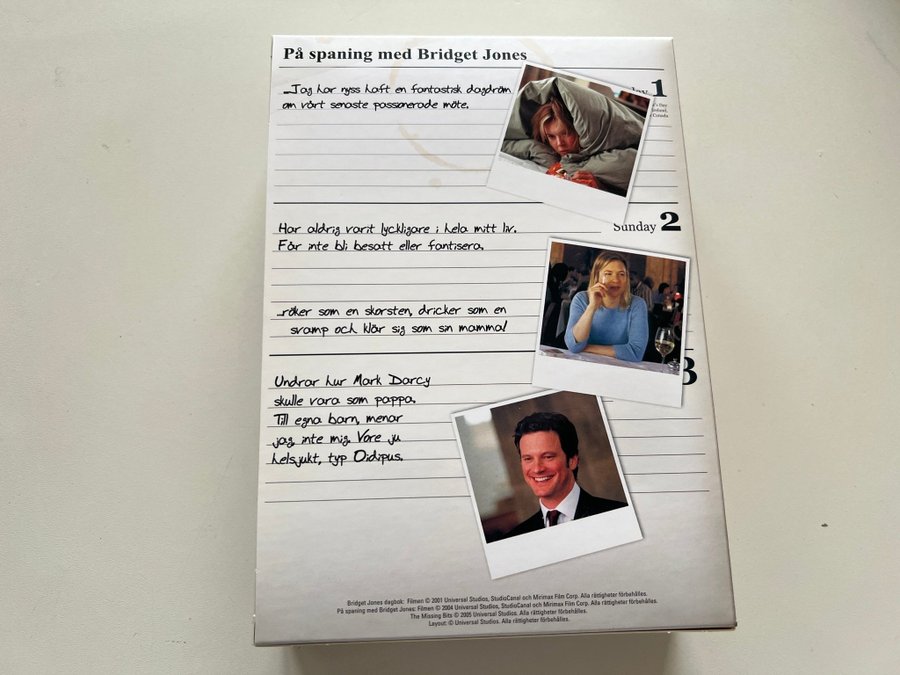 På spaning med Bridget Jones
1
...Jag har nyss haft en fantastisk dagdröm
om vårt senaste passionerade möte.
Sunday 2
Har aldrig varit lyckligare i hela mitt liv.
Får inte bli besatt eller fantisera.
...röker som en skorsten, dricker som en
svamp och klär sig som sin mamma!
3
Undrar hur Mark Darcy
skulle vara som pappa.
Till egna barn, menar
jag, inte mig. Vore ju
helsjukt, typ Oidipus.
Bridget Jones dagbok: Filmen © 2001 Universal Studios, StudioCanal och Mirimax Film Corp. Alla rättigheter förbehålles.
På spaning med Bridget Jones: Filmen © 2004 Universal Studios, StudioCanal och Mirimax Film Corp. Alla rättigheter förbehålles.
The Missing Bits © 2005 Universal Studios. Alla rättigheter förbehålles.
Layout: © Universal Studios. Alla rättigheter förbehålles.